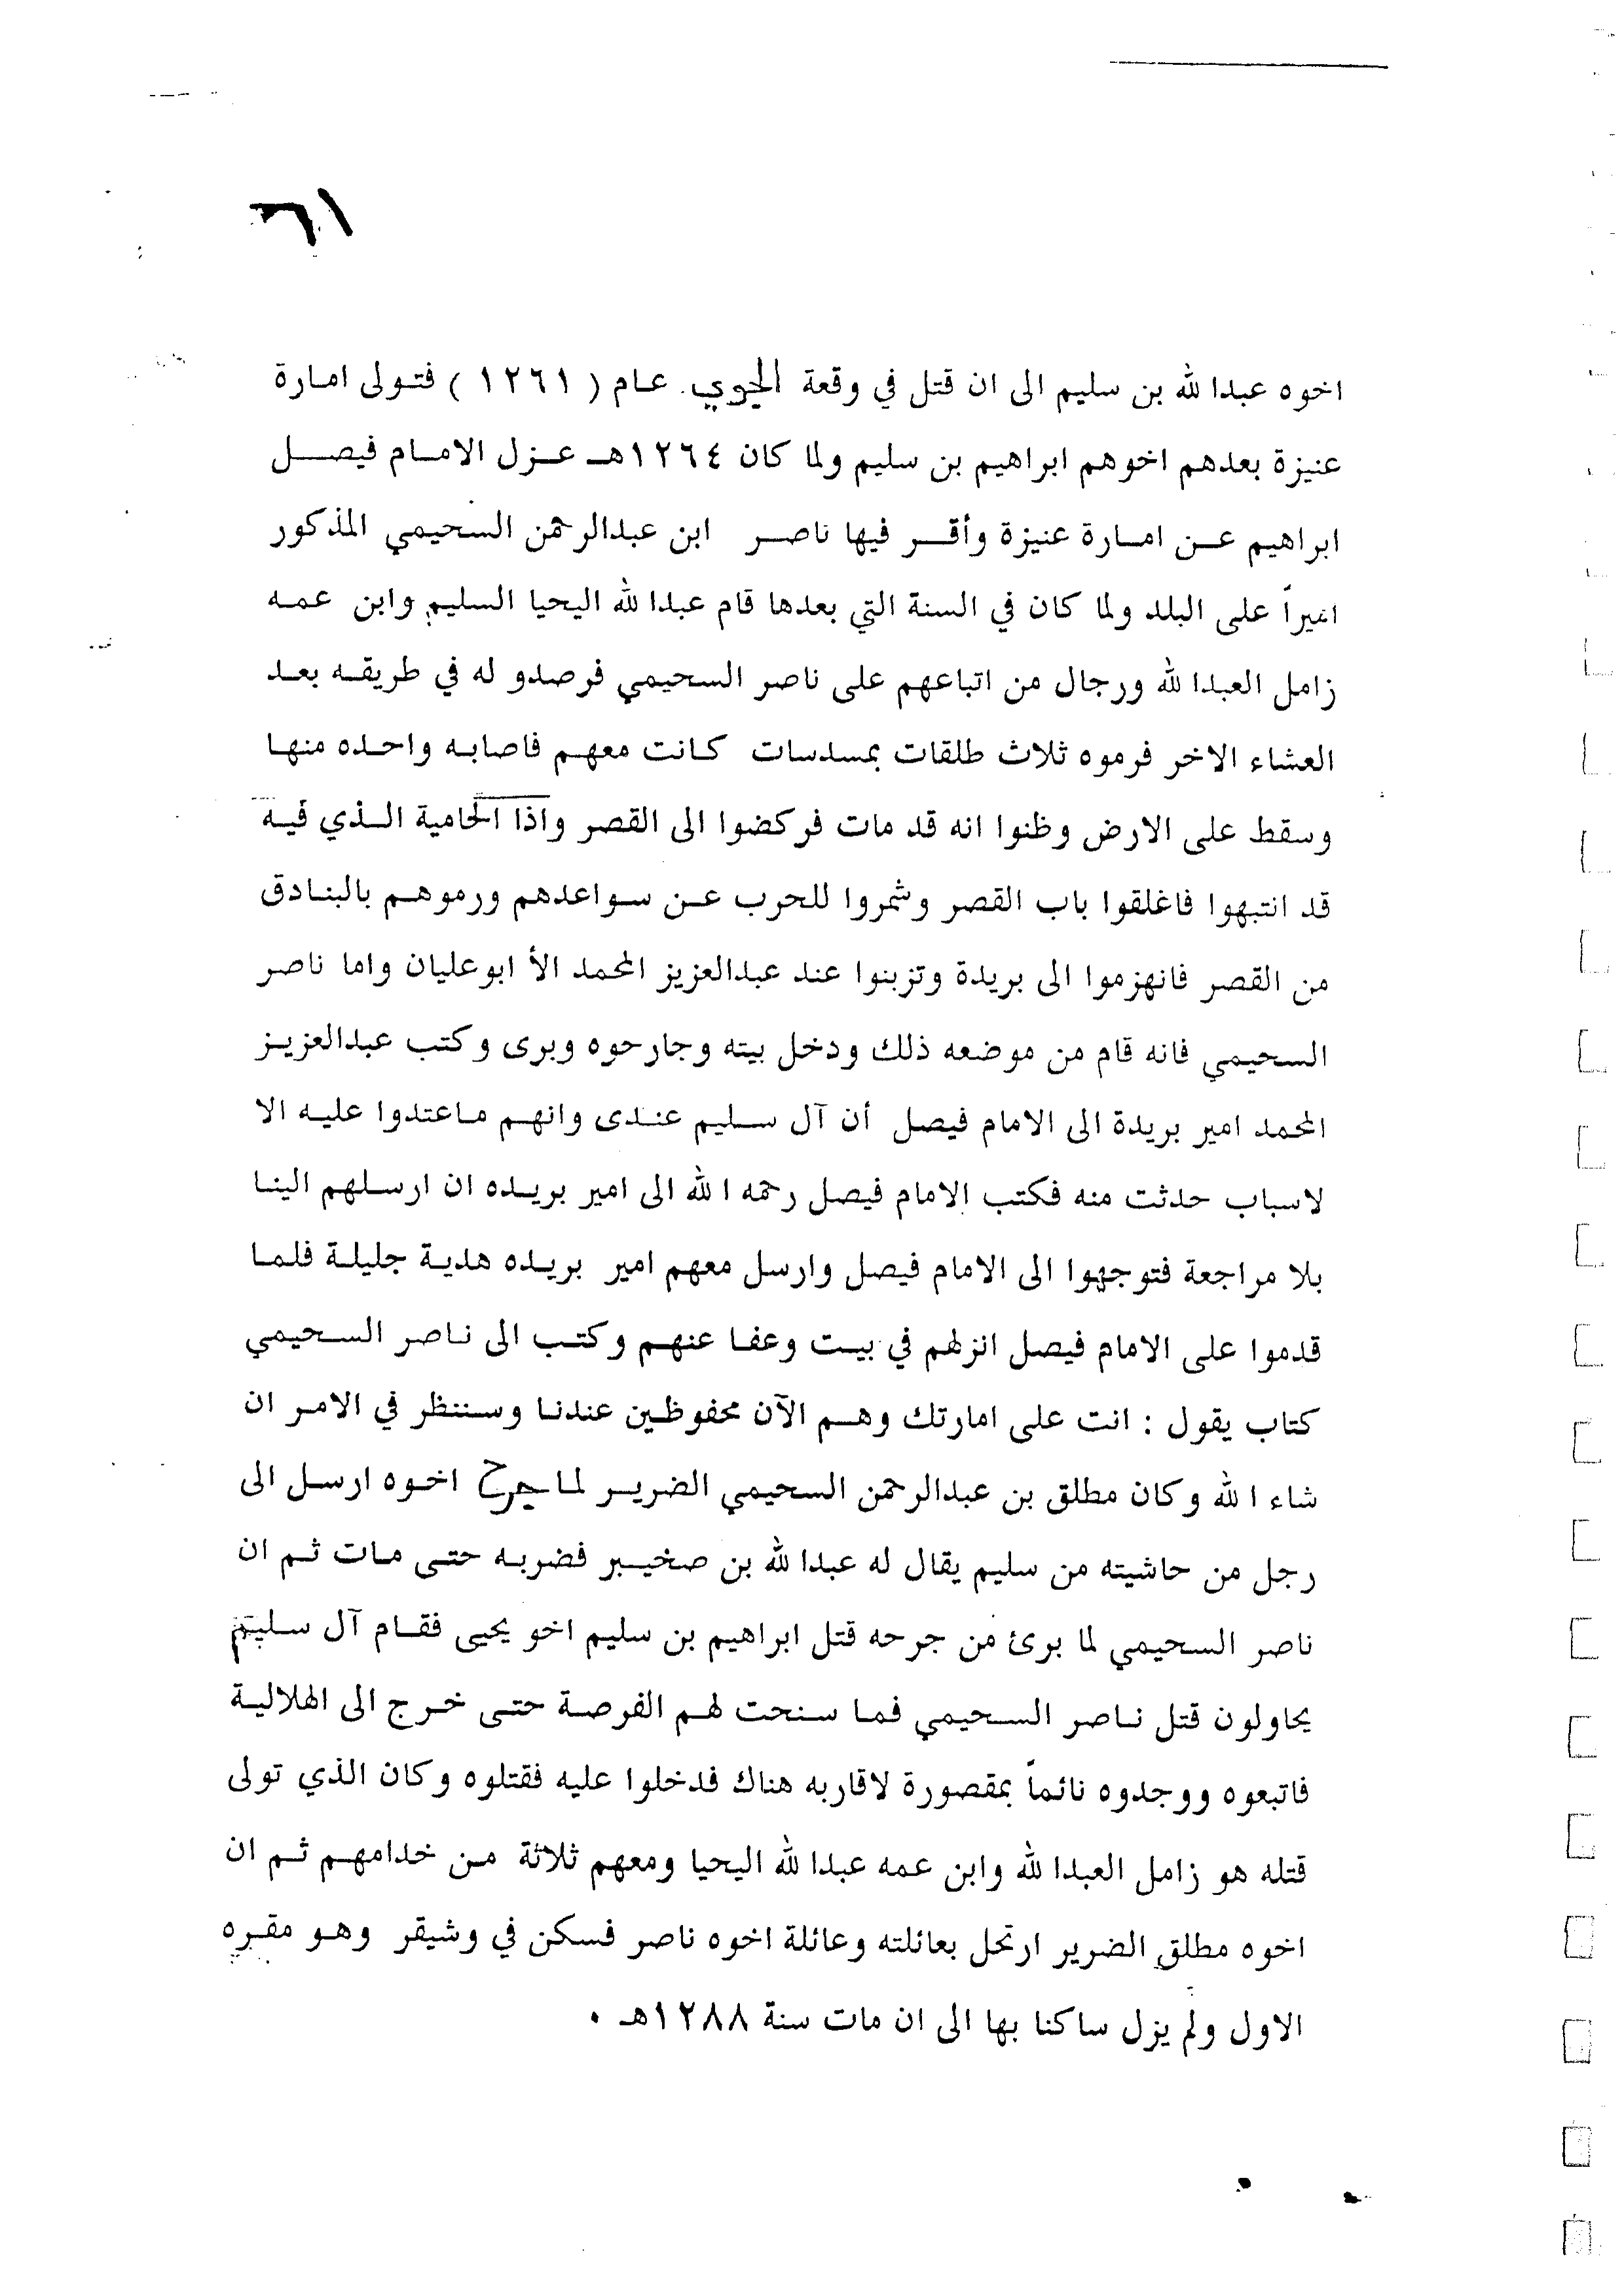 ٦١
اخوه عبدالله بن سليم الى ان قتل في وقعة الجوي عام ( ١٢٦١ ) فتولى امارة
عنيزة بعدهم اخوهم ابراهيم بن سليم ولما كان ١٢٦٤هـ عزل الامام فيصل
ابراهيم عن امارة عنيزة وأقر فيها ناصر ابن عبدالرحمن السحيمي المذكور
اميراً على البلد ولما كان في السنة التي بعدها قام عبدالله اليحيا السليم وابن عمه
زامل العبدالله ورجال من اتباعهم على ناصر السحيمي فرصدو له في طريقه بعد
العشاء الاخر فرموه ثلاث طلقات بمسدسات كانت معهم فاصابه واحده منها
وسقط على الارض وظنوا انه قد مات فركضوا الى القصر واذا الحامية الذي فيه
قد انتبهوا فاغلقوا باب القصر وشمروا للحرب عن سواعدهم ورموهم بالبنادق
من القصر فانهزموا الى بريدة وتزبنوا عند عبدالعزيز المحمد الأ ابوعليان واما ناصر
السحيمي فانه قام من موضعه ذلك ودخل بيته وجارحوه وبرى وكتب عبدالعزيز
المحمد امير بريدة الى الامام فيصل أن آل سليم عندى وانهم ماعتدوا عليه الا
لاسباب حدثت منه فكتب الامام فيصل رحمه الله الى امير بريده ان ارسلهم الينا
بلا مراجعة فتوجهوا الى الامام فيصل وارسل معهم امير بريده هدية جليلة فلما
قدموا على الامام فيصل انزلهم في بيت وعفا عنهم وكتب الى ناصر السحيمي
كتاب يقول : انت على امارتك وهم الآن محفوظين عندنا وسننظر في الامر ان
شاء الله وكان مطلق بن عبدالرحمن السحيمي الضرير لما جرح اخوه ارسل الى
رجل من حاشيته من سليم يقال له عبدالله بن صخيبر فضربه حتى مات ثم ان
ناصر السحيمي لما برئ من جرحه قتل ابراهيم بن سليم اخو يحيى فقام آل سليم
يحاولون قتل ناصر السحيمي فما سنحت لهم الفرصة حتى خرج الى الهلالية
فاتبعوه ووجدوه نائماً بمقصورة لاقاربه هناك فدخلوا عليه فقتلوه وكان الذي تولى
قتله هو زامل العبدالله وابن عمه عبدالله اليحيا ومعهم ثلاثة من خدامهم ثم ان
اخوه مطلق الضرير ارتحل بعائلته وعائلة اخوه ناصر فسكن في وشيقر وهو مقره
الاول ولم يزل ساكنا بها الى ان مات سنة ١٢٨٨هـ .